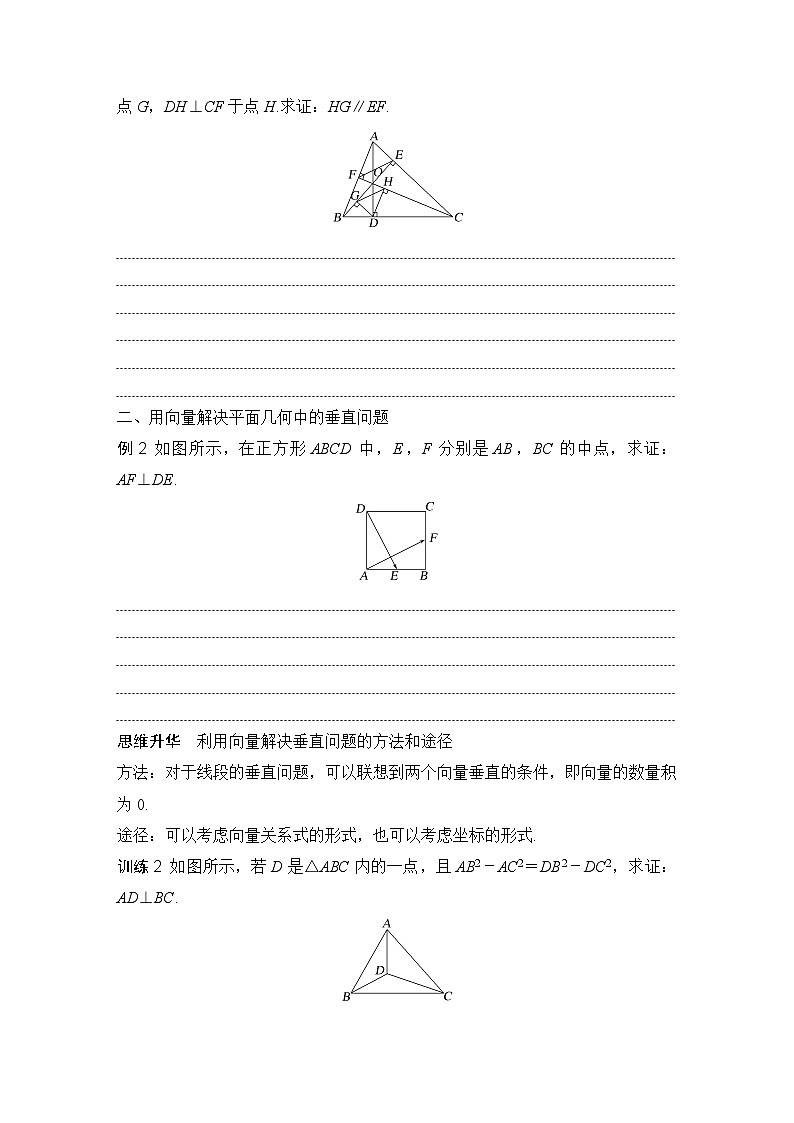 点G，DH⊥CF于点H.求证：HG∥EF.
A
E
F
O
H
G
B
D
C
二、用向量解决平面几何中的垂直问题
例2 如图所示，在正方形ABCD中，E，F分别是AB，BC的中点，求证：
AF⊥DE.
D
C
F
A
E
B
思维升华 利用向量解决垂直问题的方法和途径
方法：对于线段的垂直问题，可以联想到两个向量垂直的条件，即向量的数量积
为0.
途径：可以考虑向量关系式的形式，也可以考虑坐标的形式.
训练2 如图所示，若D是△ABC内的一点，且AB²－AC²＝DB²－DC²，求证：
AD⊥BC.
A
D
B
C